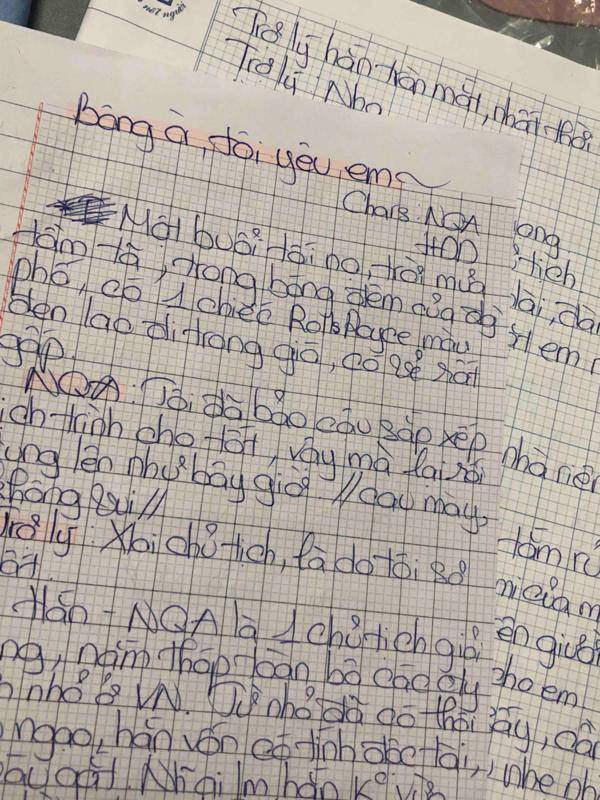 nơi người
Trợ lý hắn tròn mắt, nhất thời
Trợ lý: Nhạ
Băng à, tôi yêu em~
Chars: NQA
HDD
Một buổi tối nọ, trời mưa
tầm tã, trong bóng đêm của đg
phố, có 1 chiếc Rolls Royce màu
đen lao đi trong gió, có vẻ rất
gấp.
NQA: Tôi đã bảo cậu sắp xếp
ịch trình cho tốt, vậy mà lại rối
ung lên như bây giờ. //cau mày,
không vui//
Trợ lý: Xloi chủ tịch, là do tôi sơ
uất.
Hắn - NQA là 1 chủ tịch giỏi
ng, nắm thóp toàn bộ các cty
nhỏ ở VN. Từ nhỏ đã có thói
ngạo, hắn vốn có tính độc tài,
Nhg lm hắn k vui
ong
ủ tịch
lại, đàn
ợt em
nhà riên
tắm rử
mi của m
ên giườn
cho em
ấy, cần
nhẹ nh